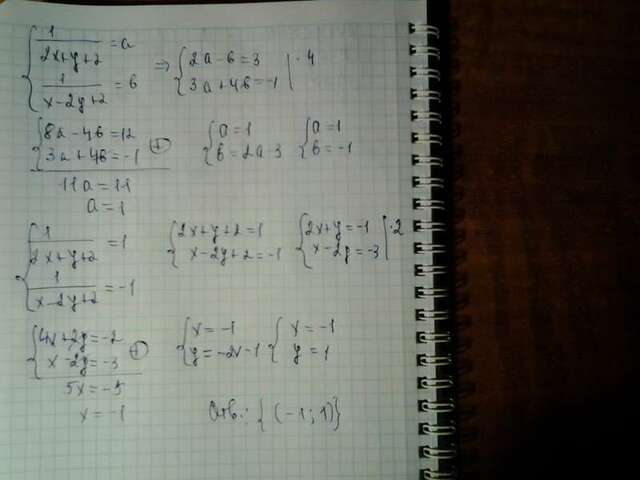 { 1/(2x+y+2) = a ; 1/(x-2y+2) = в ⇒ { 2a-в=3 ; 3a+4в=-1 | ·4
{ 8a-4в=12 ; 3a+4в=-1 (+) { a=1 ; в=2a-3 { a=1 ; в=-1
11a=11
a=1
{ 1/(2x+y+2) = 1 ; 1/(x-2y+2) = -1 { 2x+y+2=1 ; x-2y+2=-1 { 2x+y=-1 ; x-2y=-3 | ·2
{ 4x+2y=-2 ; x-2y=-3 (+) { x=-1 ; y=-2x-1 { x=-1 ; y=1
5x=-5
x=-1 Отв.: {(-1; 1)}